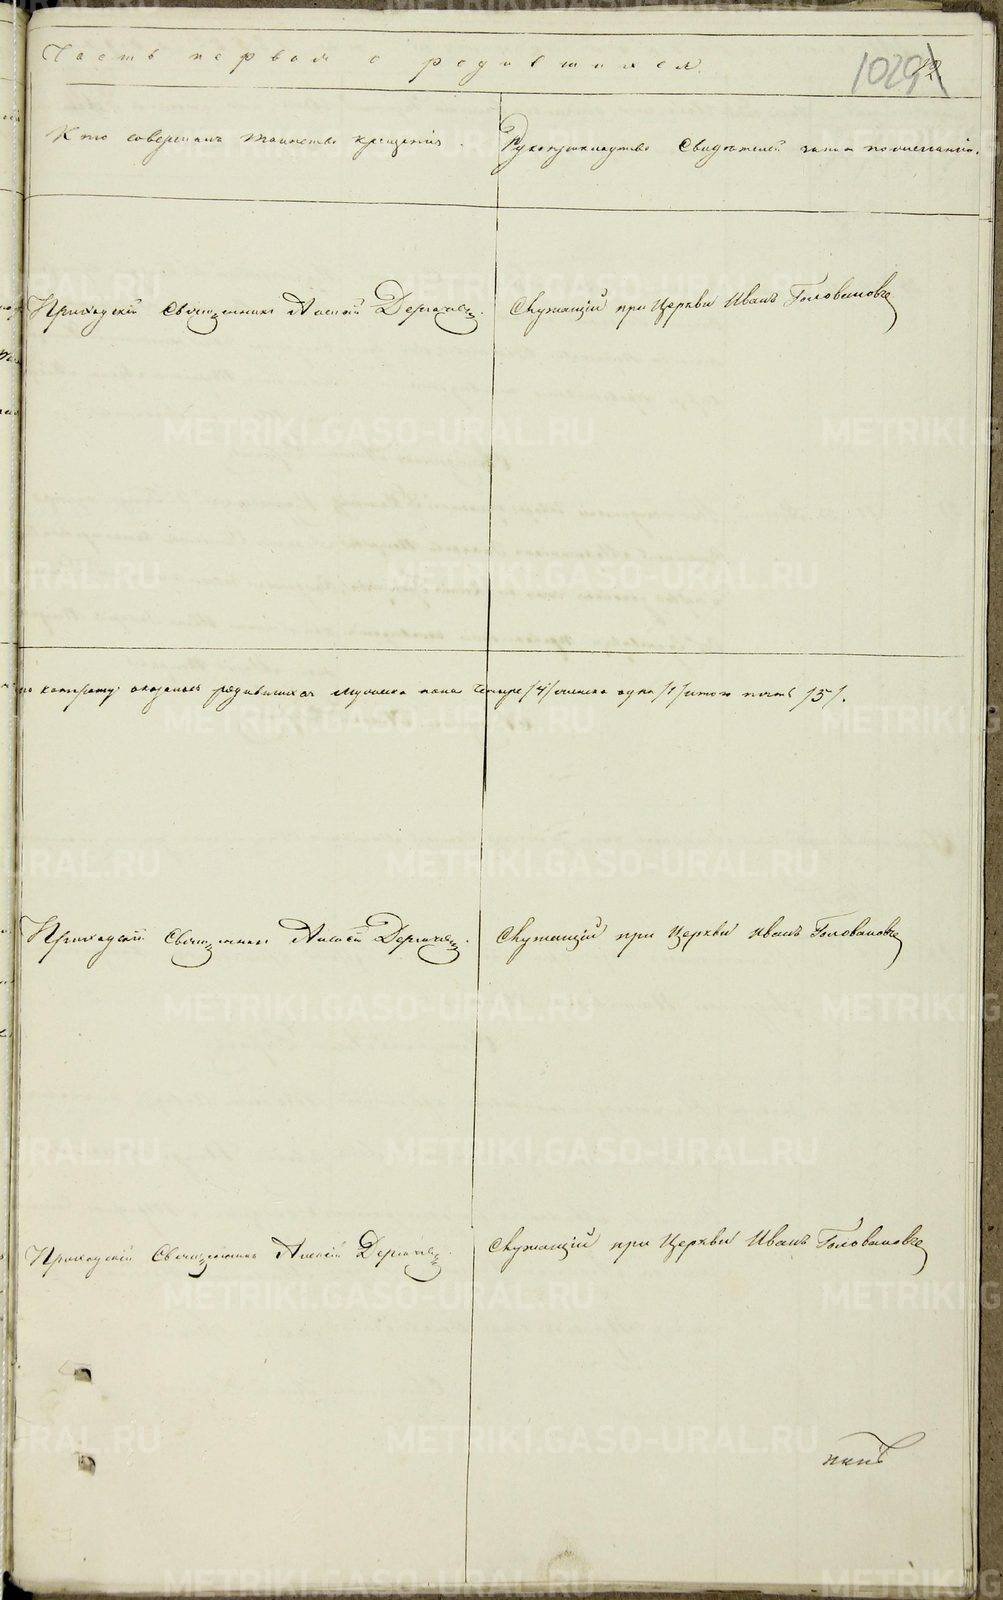 Часть первая о родившихся
1029
Кто совершалъ таинство крещенія. Рукоприкладство свидѣтелей записи по желанію.
Приходскій Священникъ Алексѣй Служащій при Церкви Иванъ Головановъ
оказалось родившихся мужеска пола четыре /4/ женска одна /1/ итого пять /5/.
Приходскій Священникъ Алексѣй Служащій при Церкви Иванъ Головановъ
Приходскій Священникъ Алексѣй Служащій при Церкви Иванъ Головановъ
METRIKI.GASO-URAL.RU